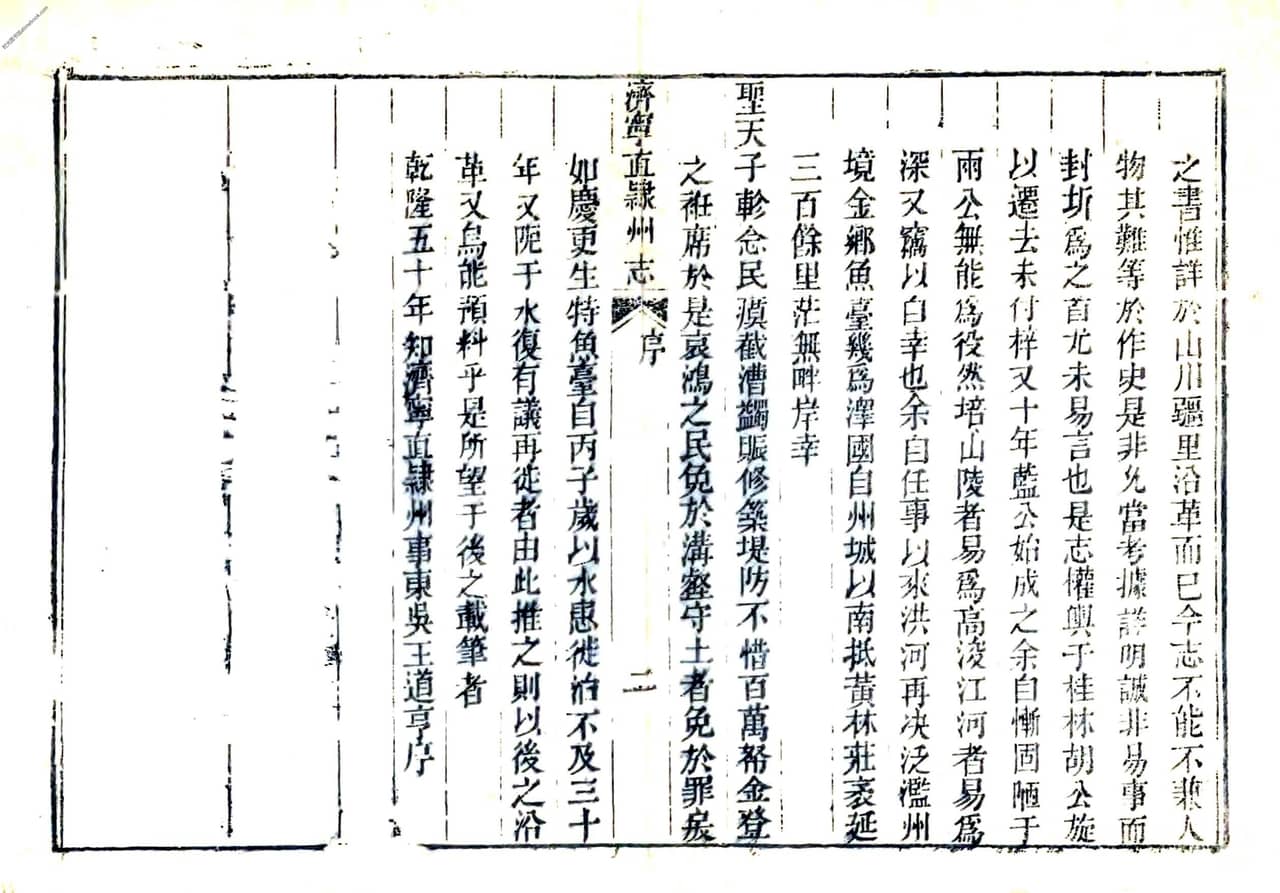 之書惟詳於山川疆里沿革而已今志不能不兼人
物其難等於作史是非允當考據詳明誠非易事而
封圻爲之首尤未易言也是志權輿于桂林胡公旋
以遷去未付梓又十年藍公始成之余自慚固陋于
兩公無能爲役然培山陵者易爲高浚江河者易爲
深又竊以自幸也余自任事以來洪河再决泛濫州
境金鄉魚臺幾爲澤國自州城以南抵黃林莊袤延
三百餘里茫無畔岸幸
聖天子軫念民瘼截漕蠲賑修築堤防不惜百萬帑金登
之袵席於是哀鴻之民免於溝壑守土者免於罪戾
濟寧直隸州志 序 二
如慶更生特魚臺自丙子歲以水患徙治不及三十
年又阨于水復有議再徙者由此推之則以後之沿
革又烏能預料乎是所望于後之載筆者
乾隆五十年知濟寧直隸州事東吳王道亨序